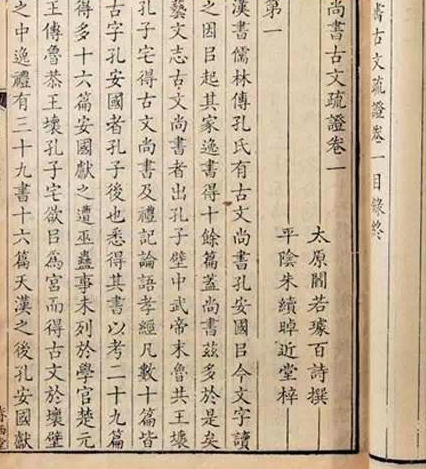 書古文疏證卷一目錄終
尚書古文疏證卷一
太原閻若璩百詩撰
平陰朱續晫近堂梓
第一
漢書儒林傳孔氏有古文尚書孔安國㠯今文字讀
之因㠯起其家逸書得十餘篇蓋尚書茲多於是矣
藝文志古文尚書者出孔子壁中武帝末魯共王壞
孔子宅得古文尚書及禮記論語孝經凡數十篇皆
古字孔安國者孔子後也悉得其書以考二十九篇
得多十六篇安國獻之遭巫蠱事未列於學官楚元
王傳魯恭王壞孔子宅欲㠯為宮而得古文於壞壁
之中逸禮有三十九書十六篇天漢之後孔安國獻